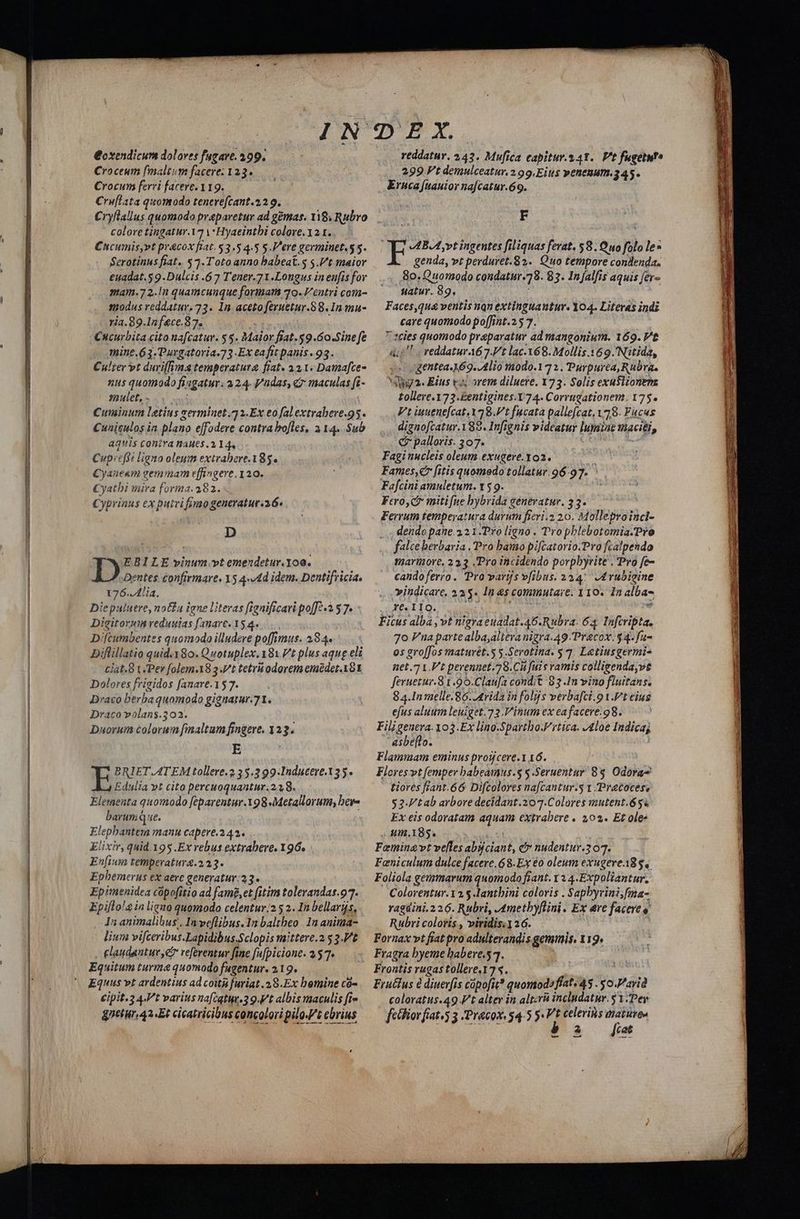 INDEX.
Coxendicum dolores fugare. 299.
Croceum smaltum facere. 123.
Crocum ferri facere. 119.
Crustata quomodo tenerescant. 229.
Crystallus quomodo præparetur ad gēmas. 118. Rubro
colore tingatur. 17 Hyacinthi colore. 121.
Cucumis, vt præcox fiat. 53. 54. 55. Vere germinet. 55.
Serotinus fiat. 57. Toto anno habeat. 55. Vt maior
euadat. 59. Dulcis. 67 Tener. 71. Longus in ensis for
mam. 72. In quamcunque formam 70. Ventri com-
modus reddatur. 73. In aceto seruetur. 88. In mu-
ria. 89. In fæce. 87.
Cucurbita cito nascatur. 55. Maior fiat. 59. 60. Sine se
mine. 63. Purgatoria. 73. Ex ea fit panis. 93.
Culter vt durissima temperatura fiat. 221. Damasce-
nus quomodo fingatur. 224. Vndas, & maculas si-
mulet.
Cuminum letius germinet. 72. Ex eo sal extrahere. 95.
Cuniculos in plano effodere contra hostes. 214. Sub
aquis contra naues. 214.
Cupressi ligno oleum extrahere. 185.
Cyaneam gemmam effingere. 120.
Cyathi mira forma. 282.
Cyprinus ex putri fimo generatur. 26.
D
DEBILE vinum vt emendetur. 100.
Dentes confirmare. 154. Ad idem. Dentifricia.
176. Alia.
Die puluere, nocte igne literas significari posse. 257.
Digitorum reduuias sanare. 154.
Discumbentes quomodo illudere possimus. 284.
Distillatio quid. 180. Quotuplex. 181. Vt plus aque eli
ciat. 81. Per solem. 183. Vt tetrū odorem emēdet. 181
Dolores frigidos sanare. 157.
Draco herba quomodo gignatur. 71.
Draco volans. 302.
Duorum colorum smaltum fingere. 123.
E
EBRIETATEM tollere. 235. 299. Inducere. 235.
Edulia vt cito percuoquantur. 228.
Elementa quomodo separentur. 198. Metallorum, her-
barumque.
Elephantem manu capere. 242.
Elixir, quid. 195. Ex rebus extrahere. 196.
Ensium temperatura. 223.
Ephemerus ex aere generatur. 23.
Epimenidea cōpositio ad famē, et sitim tolerandas. 97.
Epistola in ligno quomodo celentur. 252. In bellarijs,
In animalibus, In vestibus. In baltheo In anima-
lium visceribus. Lapidibus. Sclopis mittere. 253. Vt
claudantur, & referentur sine suspicione. 257.
Equitum turmæ quomodo fugentur. 219.
Equus vt ardentius ad coitū furiat. 28. Ex homine cō-
cipit. 34. Vt varius nascatur. 39. Vt albis maculis si-
gnetur. 42. Et cicatricibus concolori pilo. Vt ebrius
reddatur. 243. Musica capitur. 241. Vt fugetur
299 Vt demulceatur. 299. Eius venenum. 345.
Eruca suauior nascatur. 69.
F
FABA, vt ingentes siliquas ferat. 58. Quo solo le-
genda, vt perduret. 82. Quo tempore condenda.
80. Quomodo condatur. 78. 83. In salsis aquis ser-
uatur. 89.
Faces, quæ ventis non extinguantur. 104. Literas indi
care quomodo possint. 257.
Facies quomodo præparatur ad mangonium. 169. Vt
reddatur. 167. Vt lac. 168. Mollis. 169. Nitida,
gentea. 169. Alio modo. 172. Purpurea, Rubra.
diluere. 173. Solis exustionem
tollere. 173. Lentigines. 174. Corrugationem. 175.
Vt iuuenescat. 178. Vt fucata pallescat. 178. Fucus
dignoscatur. 188. Insignis videatur lumine maciei,
& palloris. 307.
Fagi nucleis oleum exugere. 102.
Fames, & sitis quomodo tollatur. 96 97.
Fascini amuletum. 159.
Fero, & miti sue hybrida generatur. 33.
Ferrum temperatura durum fieri. 220. Molle pro inci-
dendo pane. 221. Pro ligno. Pro phlebotomia. Pro
falce herbaria. Pro hamo piscatorio. Pro scalpendo
marmore. 223. Pro incidendo porphyrite. Pro se-
cando ferro. Pro varijs vsibus. 224. A rubigine
vindicare. 225. In æs commutare. 110. In alba-
re. 110.
Ficus alba, vt nigra euadat. 46. Rubra. 64. Inscripta.
70 Vna parte alba, altera nigra. 49. Præcox. 54. su-
os grossos maturèt. 55. Serotina. 57. Letius germi-
net. 71. Vt perennet. 78. Cū suis ramis colligenda, vt
seruetur. 81. 90. Clausa condit 83. In vino fluitans.
84. In melle. 86. Arida in folijs verbasci. 91. Vt eius
esus aluum leuiget. 73. Vinum ex ea facere. 98.
Fili genera. 103. Ex lino. Spartho. Vrtica. Aloe Indica,
asbesto.
Flammam eminus proijcere. 116.
Flores vt semper habeamus. 55. Seruentur 85 Odora-
tiores fiant. 66 Discolores nascantur. 51. Præcoces.
53. Vt ab arbore decidant. 207. Colores mutent. 65.
Ex eis odoratam aquam extrahere. 202. Et ole-
um. 185.
Fæminæ vt vestes abijciant, & nudentur. 307.
Fæniculum dulce facere. 68. Ex eo oleum exugere. 185.
Foliola gemmarum quomodo fiant. 124. Expoliantur.
Colorentur. 125. Ianthini coloris. Saphyrini, sma-
ragdini. 226. Rubri, Amethystini. Ex ære facere
Rubri coloris, viridis. 126.
Fornax vt fiat pro adulterandis gemmis. 119.
Fragra hyeme habere. 57.
Frontis rugas tollere. 175.
Fructus è diuersis cōpositus quomodo fiat. 45. 50. Varie
coloratus. 49. Vt alter in alterū includatur. 51. Per
sectior fiat. 53. Præcox. 54. 55. Vt celerius mature-
b 2 scat